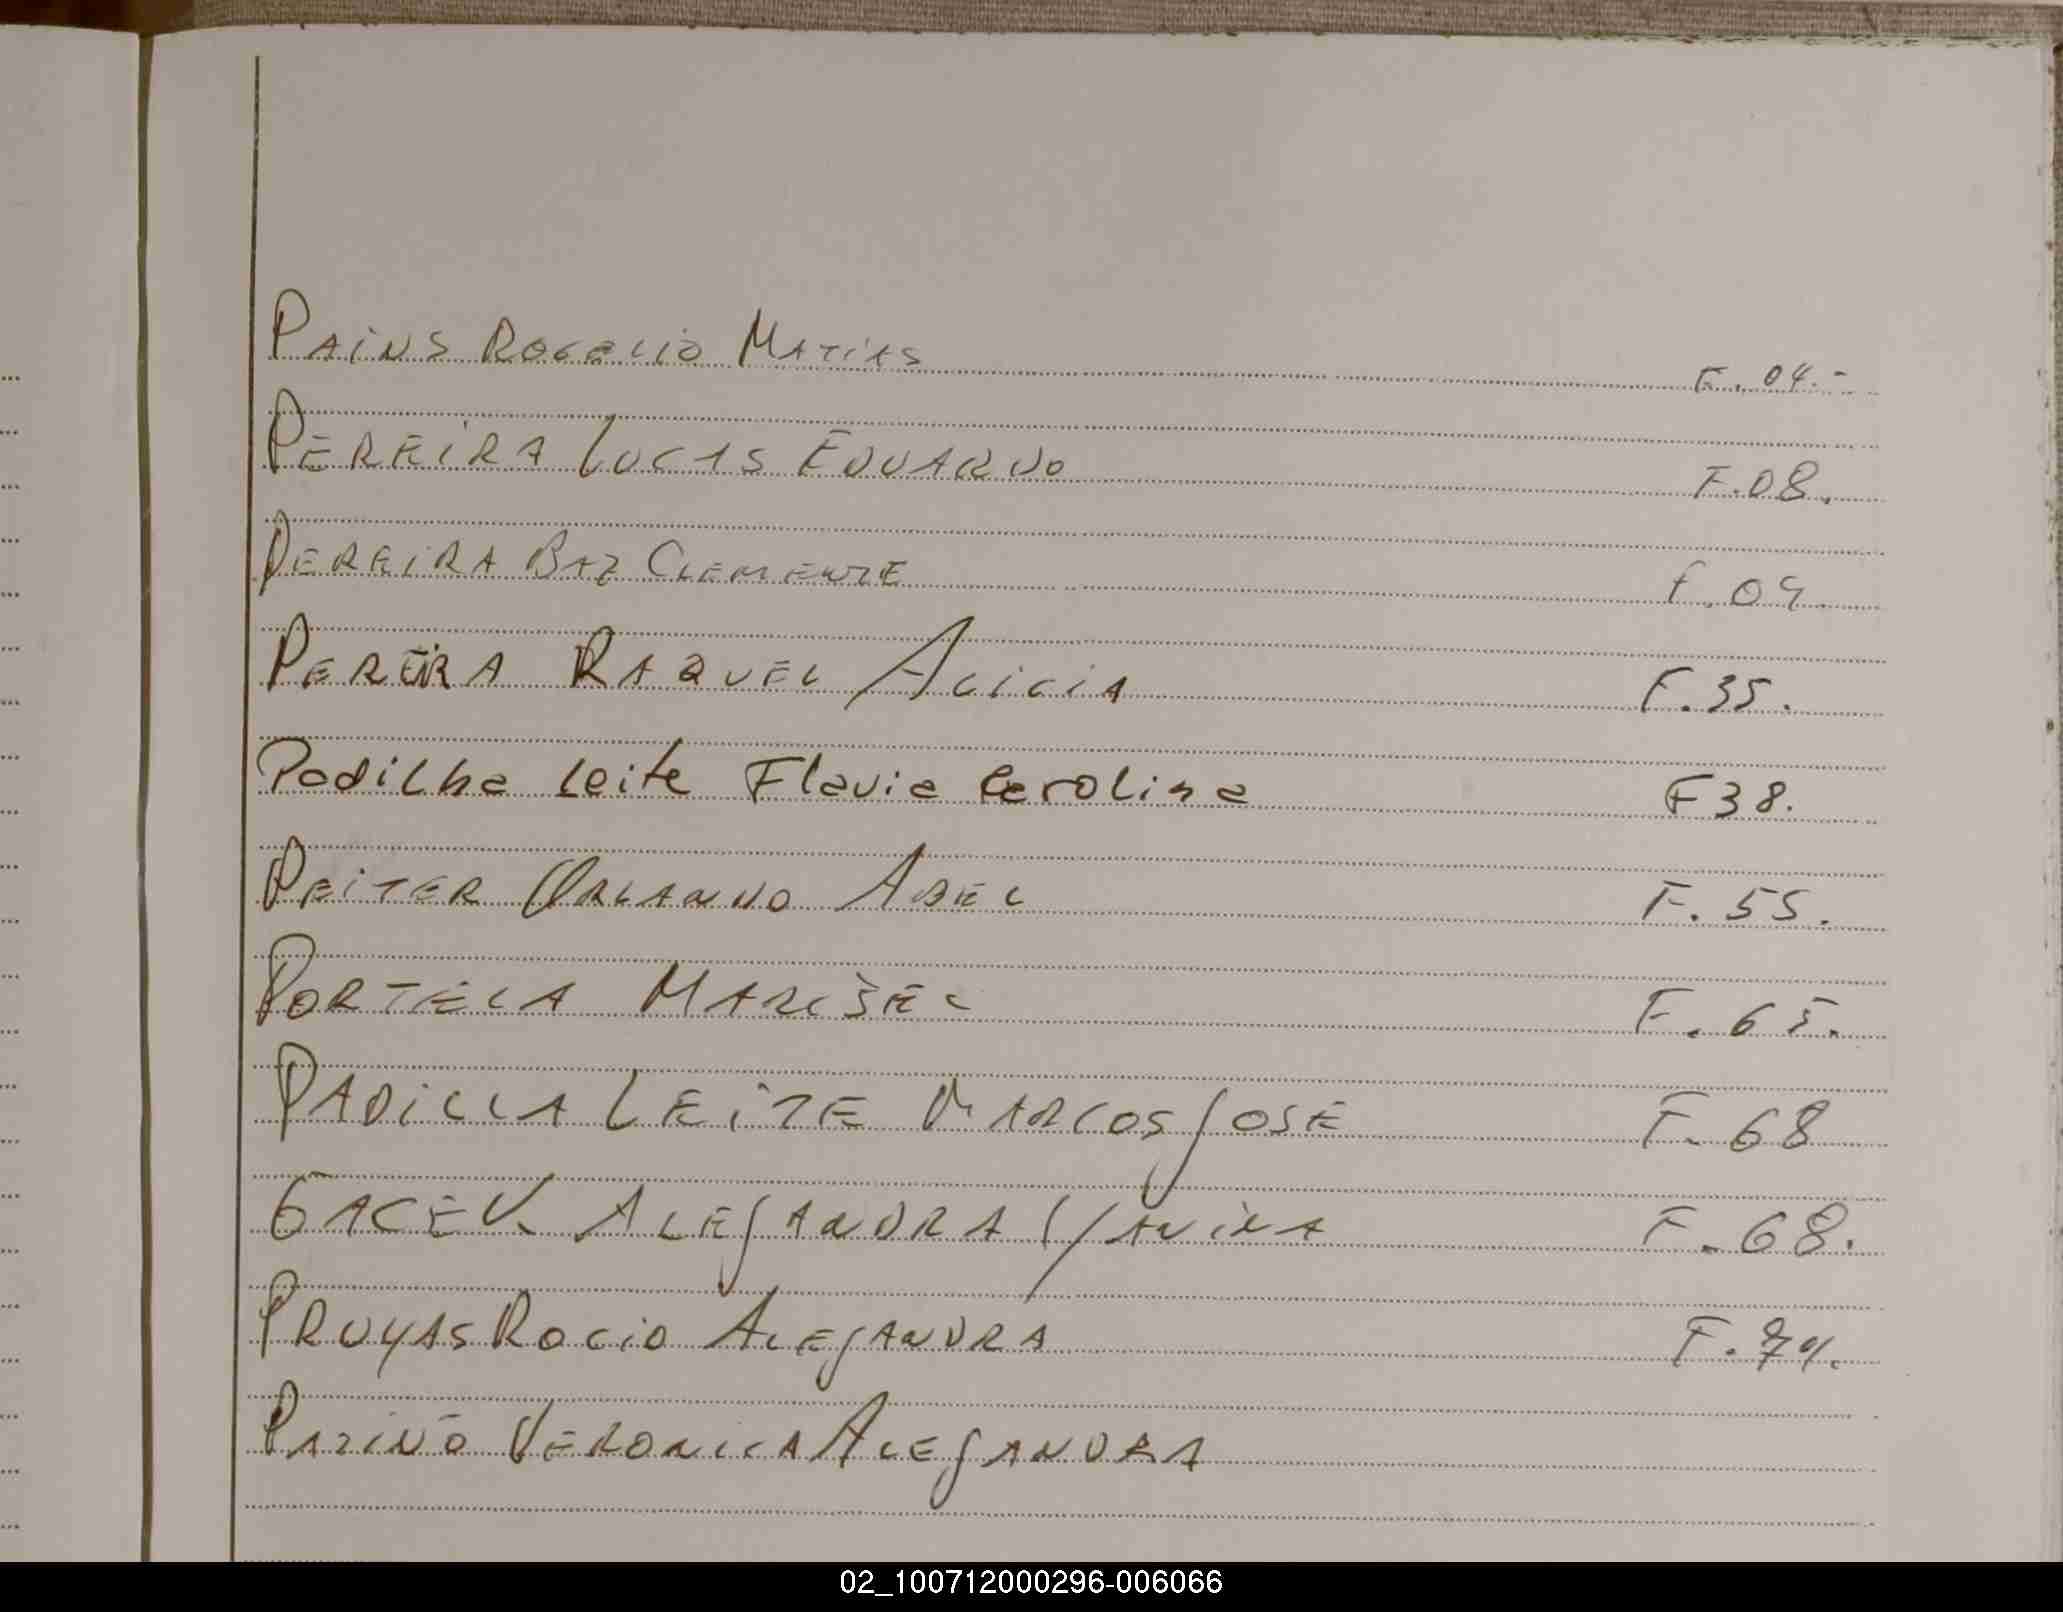 PAINS ROGELIO MATIAS F. 04.-
PEREIRA LUCAS EDUARDO F.08.
PEREIRA BAZ CLEMENTE F.04.
PEREIRA RAQUEL ALICIA F.35.
Padilha Leite Flavia Carolina F38.
PEITER ORLANDO ABEL F.55.
PORTELA MARISEL F.65.
PADILLA LEITE MARCOS JOSE F.68
GACEK. ALEJANDRA YANINA F.68.
PRUYAS ROCIO ALEJANDRA F.74.
PAZINO VERONICA ALEJANDRA
02_100712000296-006066